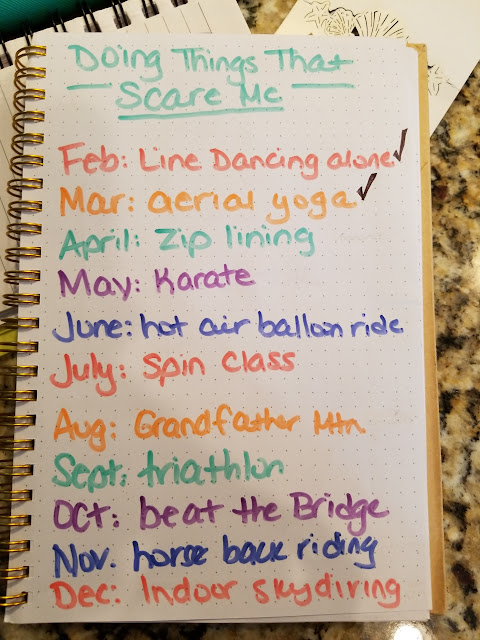 Doing Things That
Scare Me
Feb: Line Dancing alone ✓
Mar: aerial yoga ✓
April: Zip lining
May: Karate
June: hot air balloon ride
July: Spin Class
Aug: Grandfather Mtn.
Sept: triathlon
OCT: beat the Bridge
Nov. horse back riding
Dec: Indoor skydiving